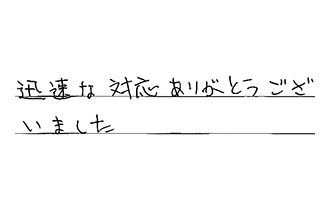 迅速な対応ありがとうござ
いました